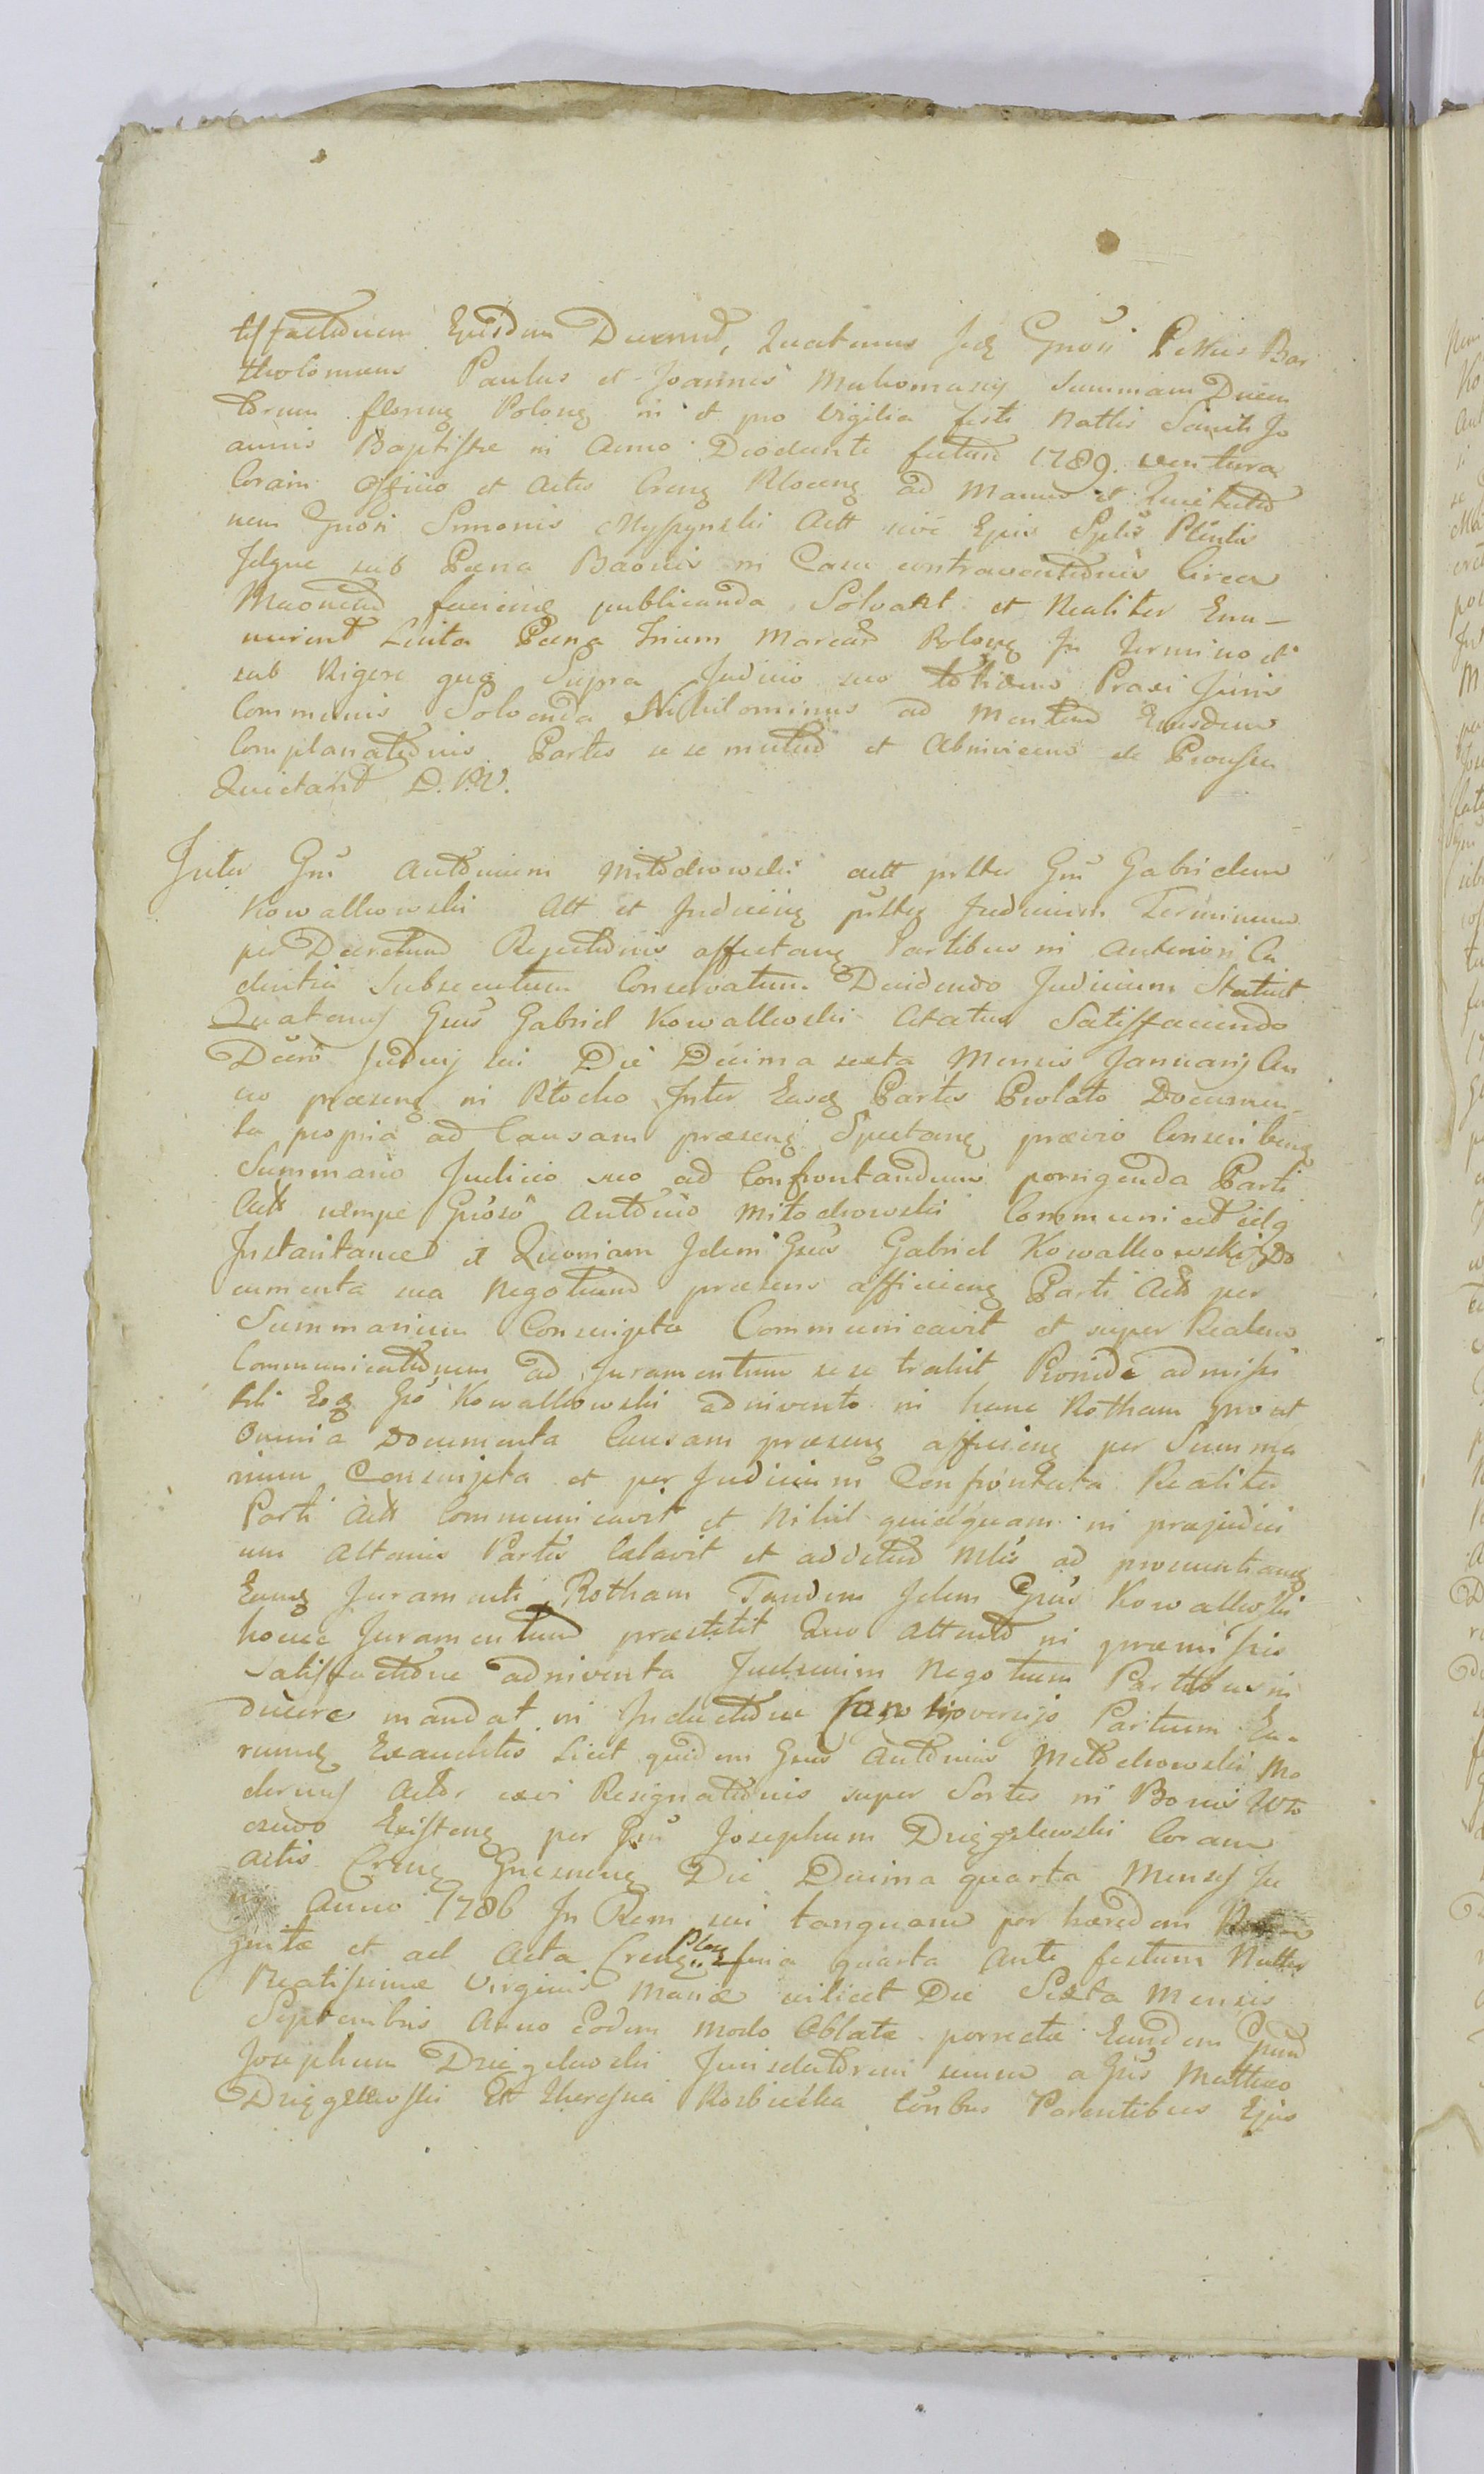 tisfactionem Ejusdem Decernit, Quatenus Idq Gnosi Petrus Bar
tholomeus Paulus et Joannes Mukomascy Summam Ducen
torum flenrq Polonq in et pro Vigilia festi Nattis Sancti Jo
annis Baptistæ in Anno Deodante futuro 1789. ventura
Coram Officio et Actis Crenq Plocenq ad Manus et Quietatio
nem Gnosi Simonis Mysyrski Actt sive Ejus Splis Plntis
Idque sub Pæna Baonis in Casu contraventionis Circa
Maonem facienq publicanda, Solvant et Realiter Enu-
merent Luita Pæna Trium Marcar Polonq In Termino et
sub Rigore quo Supra Judicio suo totidem Praxi Juris
Communis Solvenda Nihilominus ad Mentem Ejusdem
Complanationis Partes se se mutuo et Abinvicem de Præmissis
Quietant D.P.V.
Inter Gnu Antonium Mitochowski actt pltter Gnu Gabrielem
Kowalkowski Att et Judicinq pltteq Judicium Terminum
per Decretum Rejectionis affectanq Partibus in Anteriori Ca
dentia Subsecutum Conservatum Decidendo Judicium Statuit
Quatenus Gnus Gabriel Kowalkowski Citatus Satisfaciendo
Dcero Judicij sui Die Decima sexta Mensis Januarij An
no præsenq in Płocko Inter Easq Partes Prolato Documen-
ta propria ad Causam præsenq Spectanq prævio Conscribenq
Summario Judicio suo ad Confrontandum porrigenda Parti
Actt nempe Gnoso Antonio Mitochowski Communicet idq
Instantanee et Quoniam Idem Gnus Gabriel Kowalkowski Do
cumenta sua Negotium præsens afficienq Parti Actt per
Summarium Conscripta Communicavit et super Realem
Communicationem ad Juramentum se se trahit Proinde admissi
bili Eoq Gno Kowalkowski adinvento in hanc Rotham prout
Omnia Documenta Causam præsenq afficienq per Summa
rium Conscripta et per Judicium Confrontata Realiter
Parti Actt Communicavit et Nihil quidquam in præjudici
um Altarius Partis Celavit et additur Mtis ad pronuntianq
Eamq Juramenti Rotham Tandem Idem Gnus Kowalkowski
hocce Juramentum præstitit Quo Attento in præmissis
Satisfactione adinventa Judicium Negotium Partibus in
ducere mandat in Inductione Controversijs Partium Ea-
rumq Exauditis Licet quidem Gnus Antonius Mitochowski Mo
dernus Actor exvi Resignationis super Sortes in Bonis Wro
czewo Existenq per Gnu Josephum Dzięgelewski Coram
Actis Crenq Gnesnenq Die Decima quarta Mensis Ju
nij Anno 1786 In Rem sui tanquam per hæredem
gnitæ et ad Acta Crenq Plocq feria quarta Ante festum Nattis
Beatissimæ Virginis Mariæ scilicet Die Sexta Mensis
Septembris Anno Eodem modo Oblatæ porrectæ Eundem Gnum
Josephum Dzięgelewski Jurisdatorem suum a Gnis Mattheo
Dzięgelewski Et Theresia Rosbiecka Conbus Parentibus Ejus